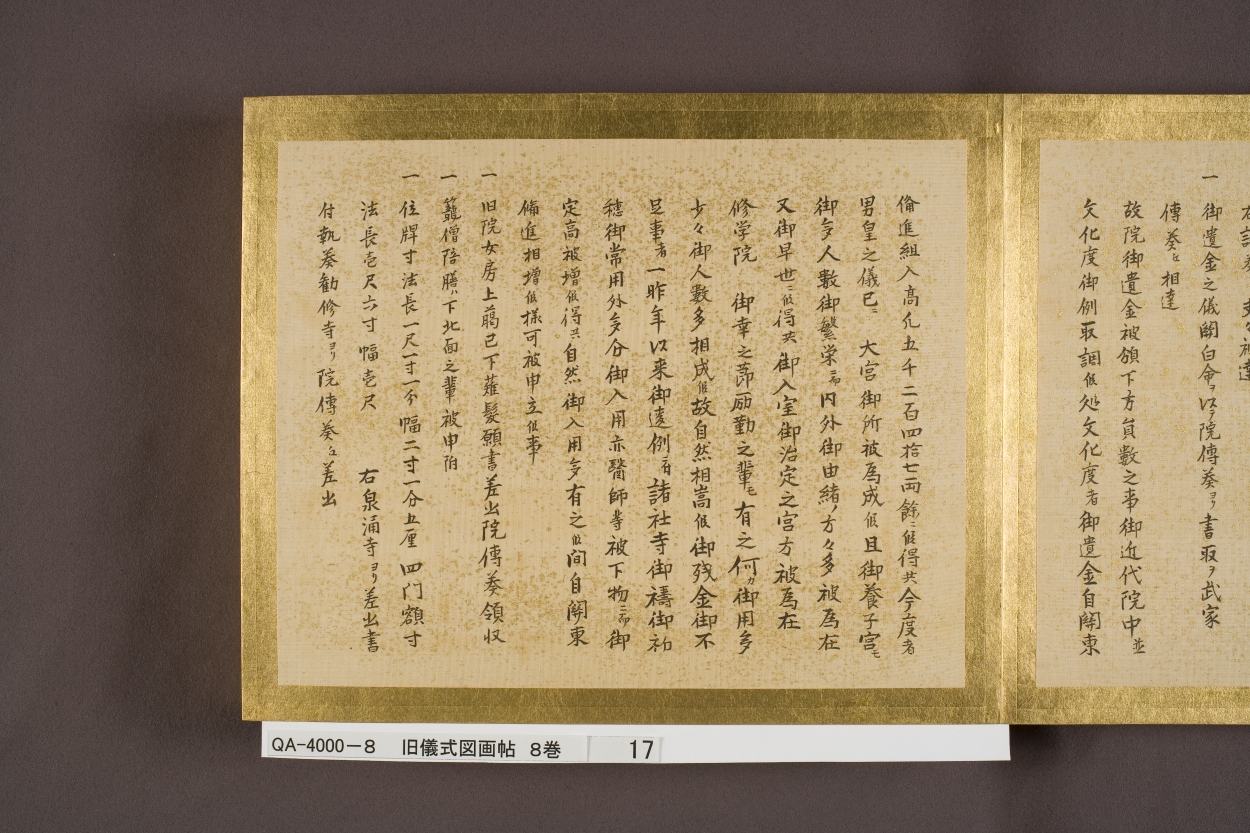 一 御遺金之儀関白命ヲ以テ院傳奏ヨリ書取ヲ武家
傳奏ヱ相達
故院御遺金被頒下方員数之事御近代院中並
文化度御例取調候処文化度者御遺金自関東
備進組入高凡五千二百四拾七両餘ニ候得共今度者
男皇之儀已ニ 大宮御所被為成候且御養子宮モ
御多人数御繁栄ニ而内外御由緒ノ方々多被為在
又御早世ニ候得共御入室御治定之宮方被為在
修学院 御幸之節励勤之輩モ有之何カ御用多
少々御人数多相成候故自然相嵩候御残金御不
足事者一昨年以来御違例ニ而者諸社寺御禱御祈
穏御常用外多分御入用亦醫師等被下物ニ而御
定高被増候得共自然御入用多有之候间自関東
備進相増候様可被申立候事
一 旧院女房上﨟已下薙髪願書差出院傳奏領収
一 籠僧陪膳ハ下北面之輩被申附
一 位牌寸法長一尺一寸一分幅二寸一分五厘 四门額寸
法長壱尺六寸幅壱尺 右泉涌寺ヨリ差出書
付執奏勧修寺ヨリ院傳奏ヱ差出
QA-4000-8 旧儀式図画帖 8巻 17